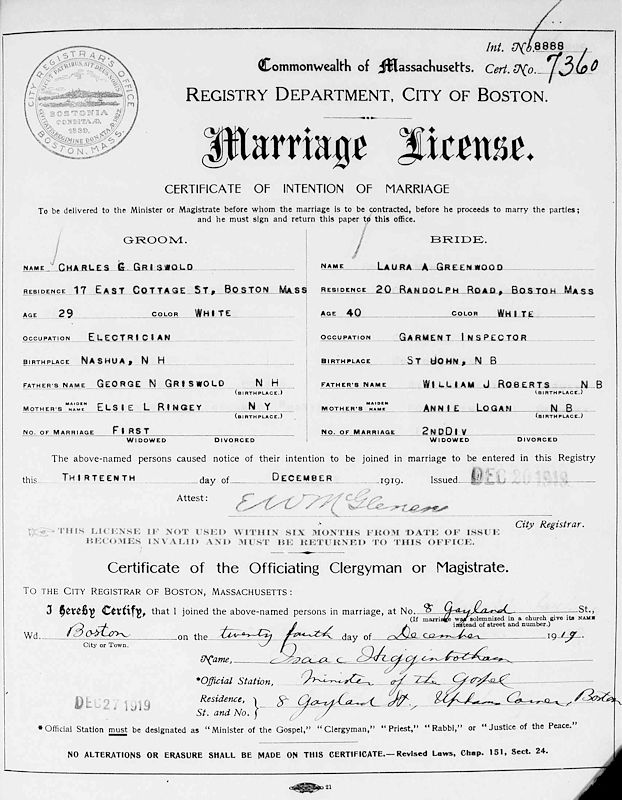 CITY REGISTRAR'S OFFICE
BOSTONIA
CONDITA A.D.
1630.
BOSTON, MASS.
Int. No. 8888
Commonwealth of Massachusetts. Cert. No. 7360
REGISTRY DEPARTMENT, CITY OF BOSTON.
Marriage License.
CERTIFICATE OF INTENTION OF MARRIAGE
To be delivered to the Minister or Magistrate before whom the marriage is to be contracted, before he proceeds to marry the parties;
and he must sign and return this paper to this office.
GROOM.
NAME CHARLES G GRISWOLD
RESIDENCE 17 EAST COTTAGE ST, BOSTON MASS
AGE 29 COLOR WHITE
OCCUPATION ELECTRICIAN
BIRTHPLACE NASHUA, N H
FATHER'S NAME GEORGE N GRISWOLD N H
(BIRTHPLACE.)
MOTHER'S MAIDEN NAME ELSIE L RINGEY N Y
(BIRTHPLACE.)
NO. OF MARRIAGE FIRST
WIDOWED DIVORCED
BRIDE.
NAME LAURA A GREENWOOD
RESIDENCE 20 RANDOLPH ROAD, BOSTON MASS
AGE 40 COLOR WHITE
OCCUPATION GARMENT INSPECTOR
BIRTHPLACE ST JOHN, N B
FATHER'S NAME WILLIAM J ROBERTS N B
(BIRTHPLACE.)
MOTHER'S MAIDEN NAME ANNIE LOGAN N B
(BIRTHPLACE.)
NO. OF MARRIAGE 2NDDIV
WIDOWED DIVORCED
The above-named persons caused notice of their intention to be joined in marriage to be entered in this Registry
this THIRTEENTH day of DECEMBER 1919. Issued DEC 20 1919
Attest: E W McGlenen
City Registrar.
THIS LICENSE IF NOT USED WITHIN SIX MONTHS FROM DATE OF ISSUE
BECOMES INVALID AND MUST BE RETURNED TO THIS OFFICE.
Certificate of the Officiating Clergyman or Magistrate.
TO THE CITY REGISTRAR OF BOSTON, MASSACHUSETTS:
I Hereby Certify, that I joined the above-named persons in marriage, at No. 8 Gayland St.,
(If marriage was solemnized in a church give its NAME
instead of street and number.)
Wd. Boston on the twenty fourth day of December 1919.
City or Town.
Name, Isaac Higginbotham
*Official Station, Minister of the Gospel
Residence, St. and No. 8 Gayland St, Uphams Corner, Boston
DEC 27 1919
*Official Station must be designated as "Minister of the Gospel," "Clergyman," "Priest," "Rabbi," or "Justice of the Peace."
NO ALTERATIONS OR ERASURE SHALL BE MADE ON THIS CERTIFICATE.—Revised Laws, Chap. 151, Sect. 24.
21